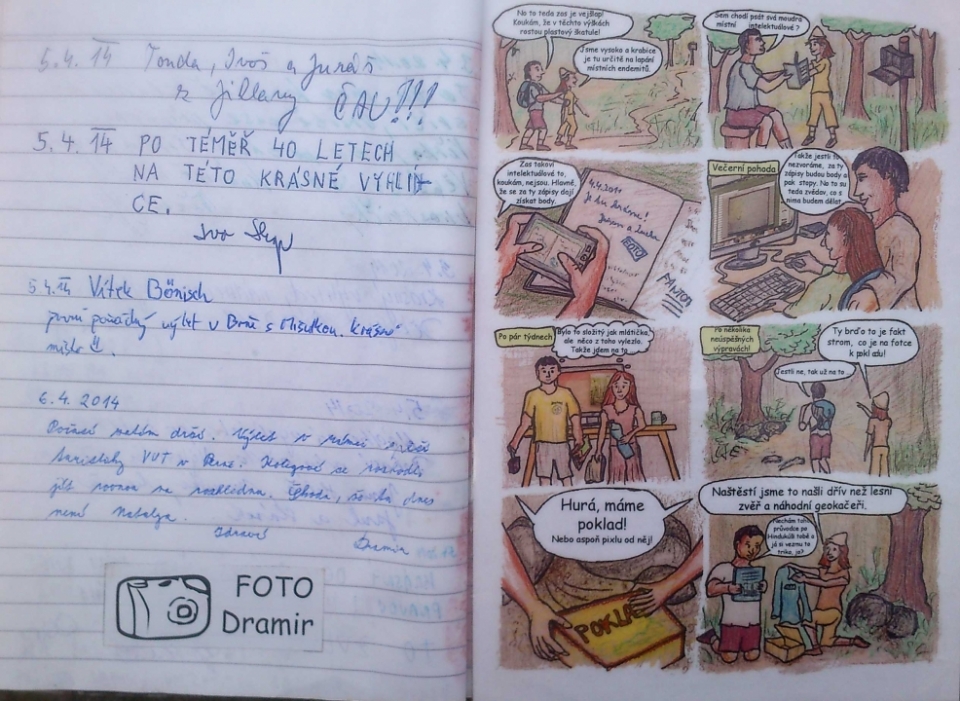 5.4.14 Tonda, Ivoš a Juráš
z Jillary ČAU!!!
5.4.14 PO TÉMĚŘ 40 LETECH
NA TÉTO KRÁSNÉ VYHLI
CE.
Ivo
5.4.14 Vítek Bönisch
první pořádný výlet v Brně s Mišutkou. Krásné
místo
6.4.2014
Počasí nám drží. Výlet v rámci
turistiky VUT v Brně. se rozhodli
jít rovnou na rozhlednu. Škoda, že tu dnes
není Natalya.
Zdraví
Dramir
FOTO
Dramir
No to teda zas je vejšlap!
Koukám, že v těchto výškách
rostou plastový škatule!
Jsme vysoko a krabice
je tu určitě na lapání
místních endemitů.
Sem chodí psát svá moudra
místní intelektuálové ?
Zas takoví
intelektuálové to,
koukám, nejsou. Hlavně,
že se za ty zápisy dají
získat body.
4.4.2014
Je tu krásně!
PANTON
Večerní pohoda
Takže jestli to
nezvoráme, za ty
zápisy budou body a
pak stopy. No to su
teda zvědav, co s
nima budem dělat.
Po pár týdnech
Bylo to složitý jak mlátička,
ale něco z toho vylezlo.
Takže jdem na to
Po několika
neúspěšných
výpravách!
Ty brďo to je fakt
strom, co je na fotce
k pokladu!
Jestli ne, tak už na to ...
Hurá, máme
poklad!
Nebo aspoň pixlu od něj!
POKLAD
Naštěstí jsme to našli dřív než lesní
zvěř a náhodní geokačeři.
Nechám toho
průvodce po
Hindúkúši tobě a
já si vezmu to
triko, jo?